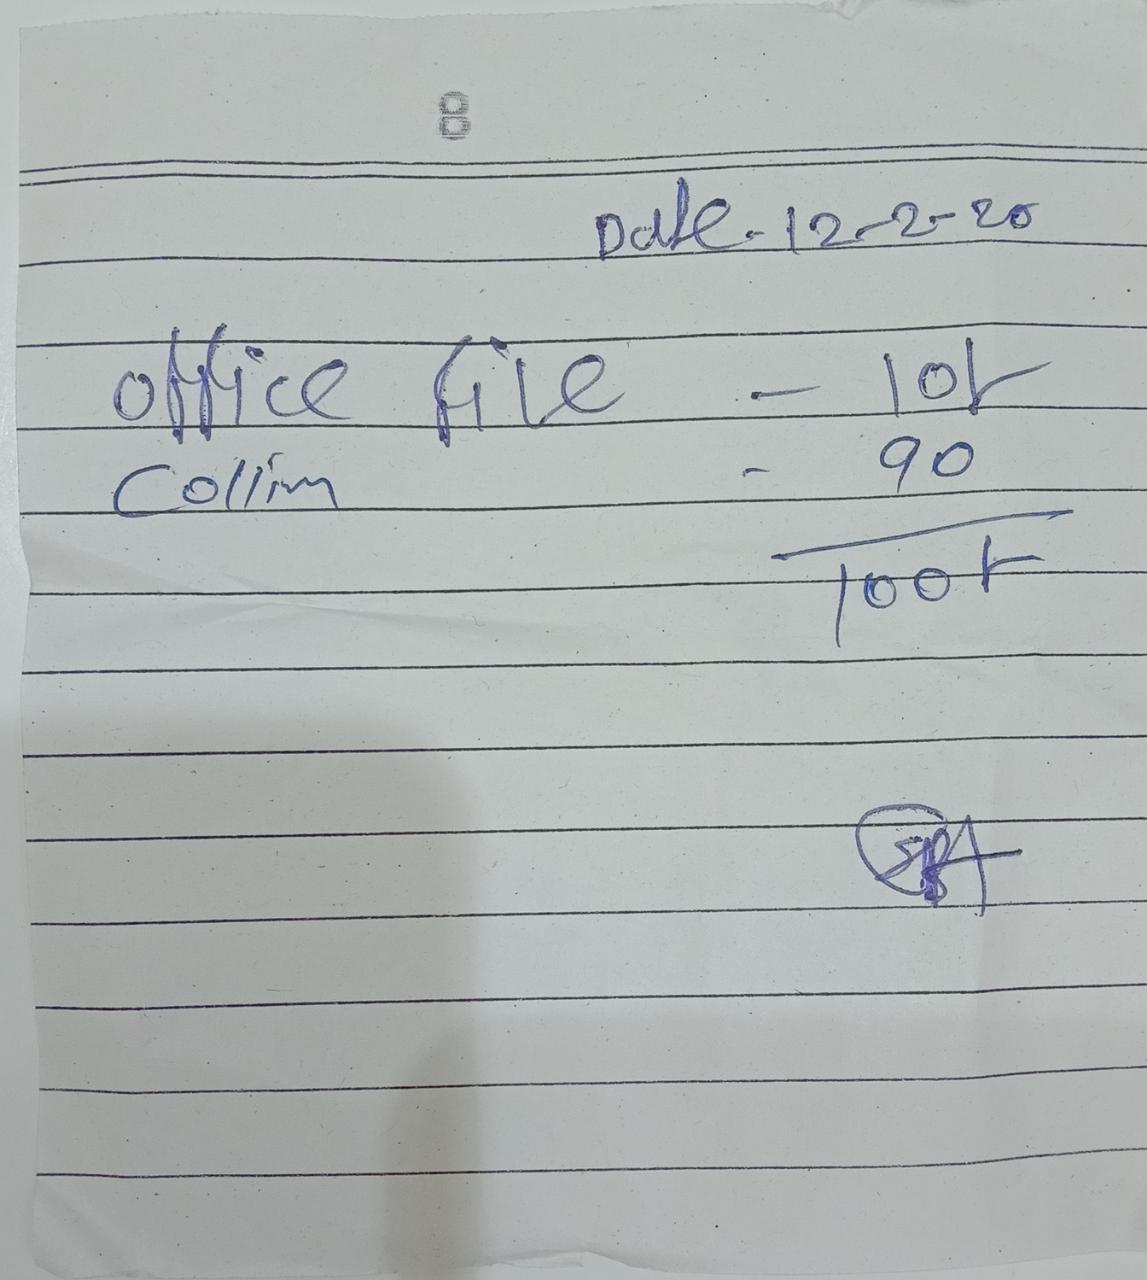 8
Date - 12-2-20
office file - 10/-
Collin - 90
100/-